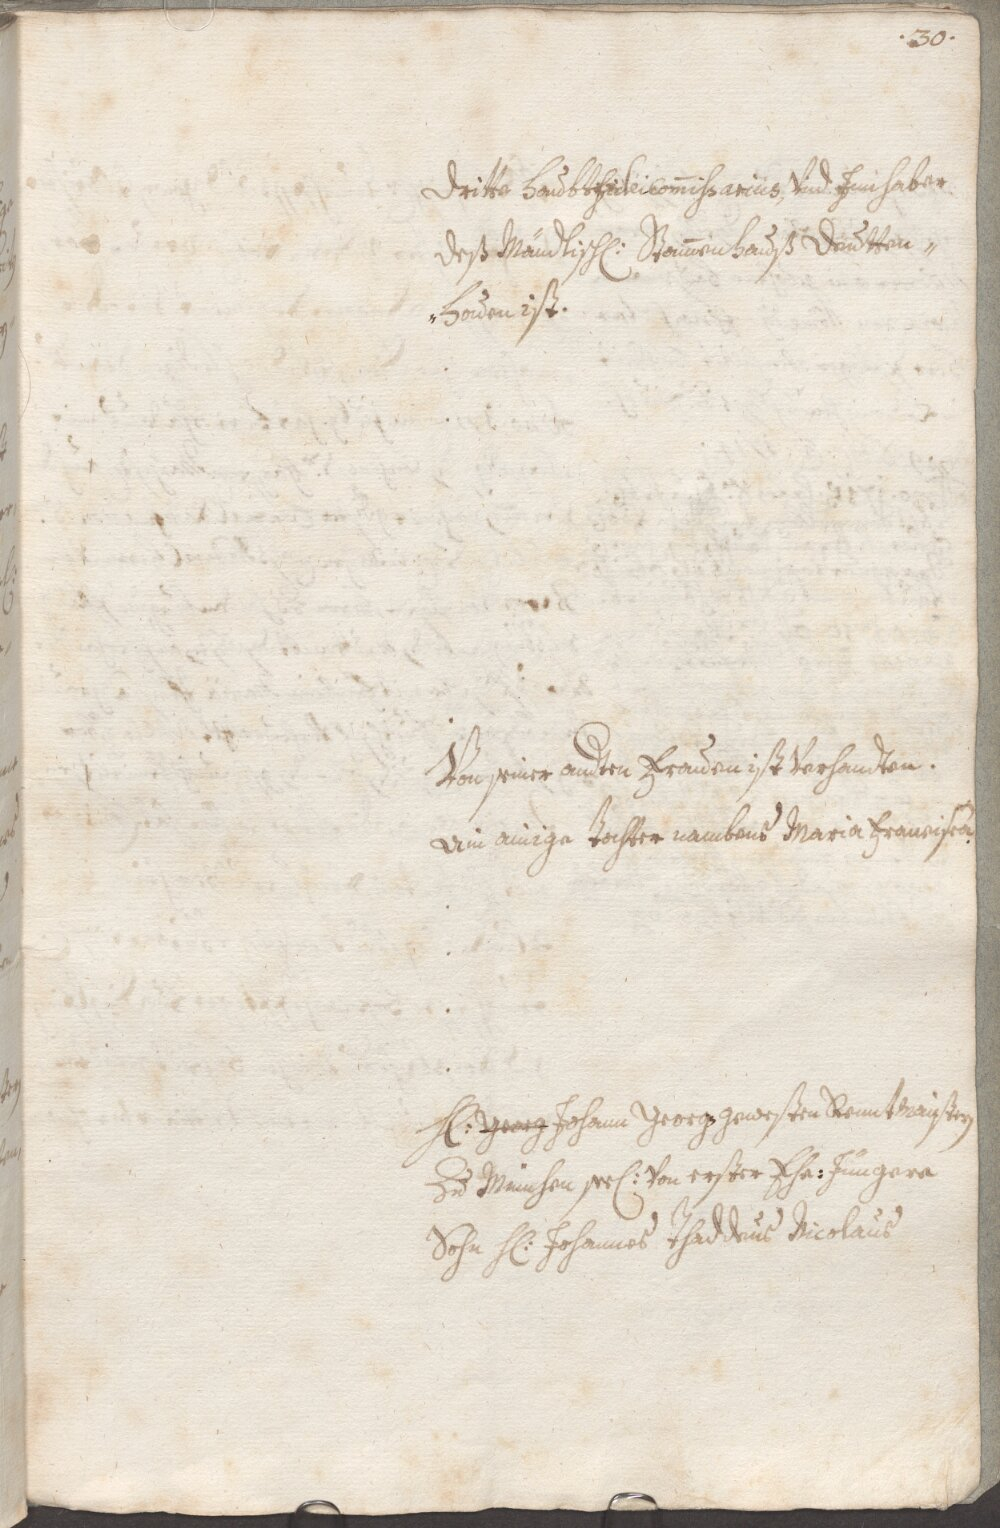 ·30·
dritte HaubtFideicom̅issarius, Und Innhaber
deß Mändlisch: Stam̅enhauß Deutten„
„houen ist.
Von seiner andten Frauen ist Verhandten.
Ain ainige Tochter nambens Maria Francisca.
H: Georg Johann Georg gewesten Renntmaisters
Zu München seel: Von erster Ehe: Jüngere
Sohn H: Johannes Thaddeus Nicolaus